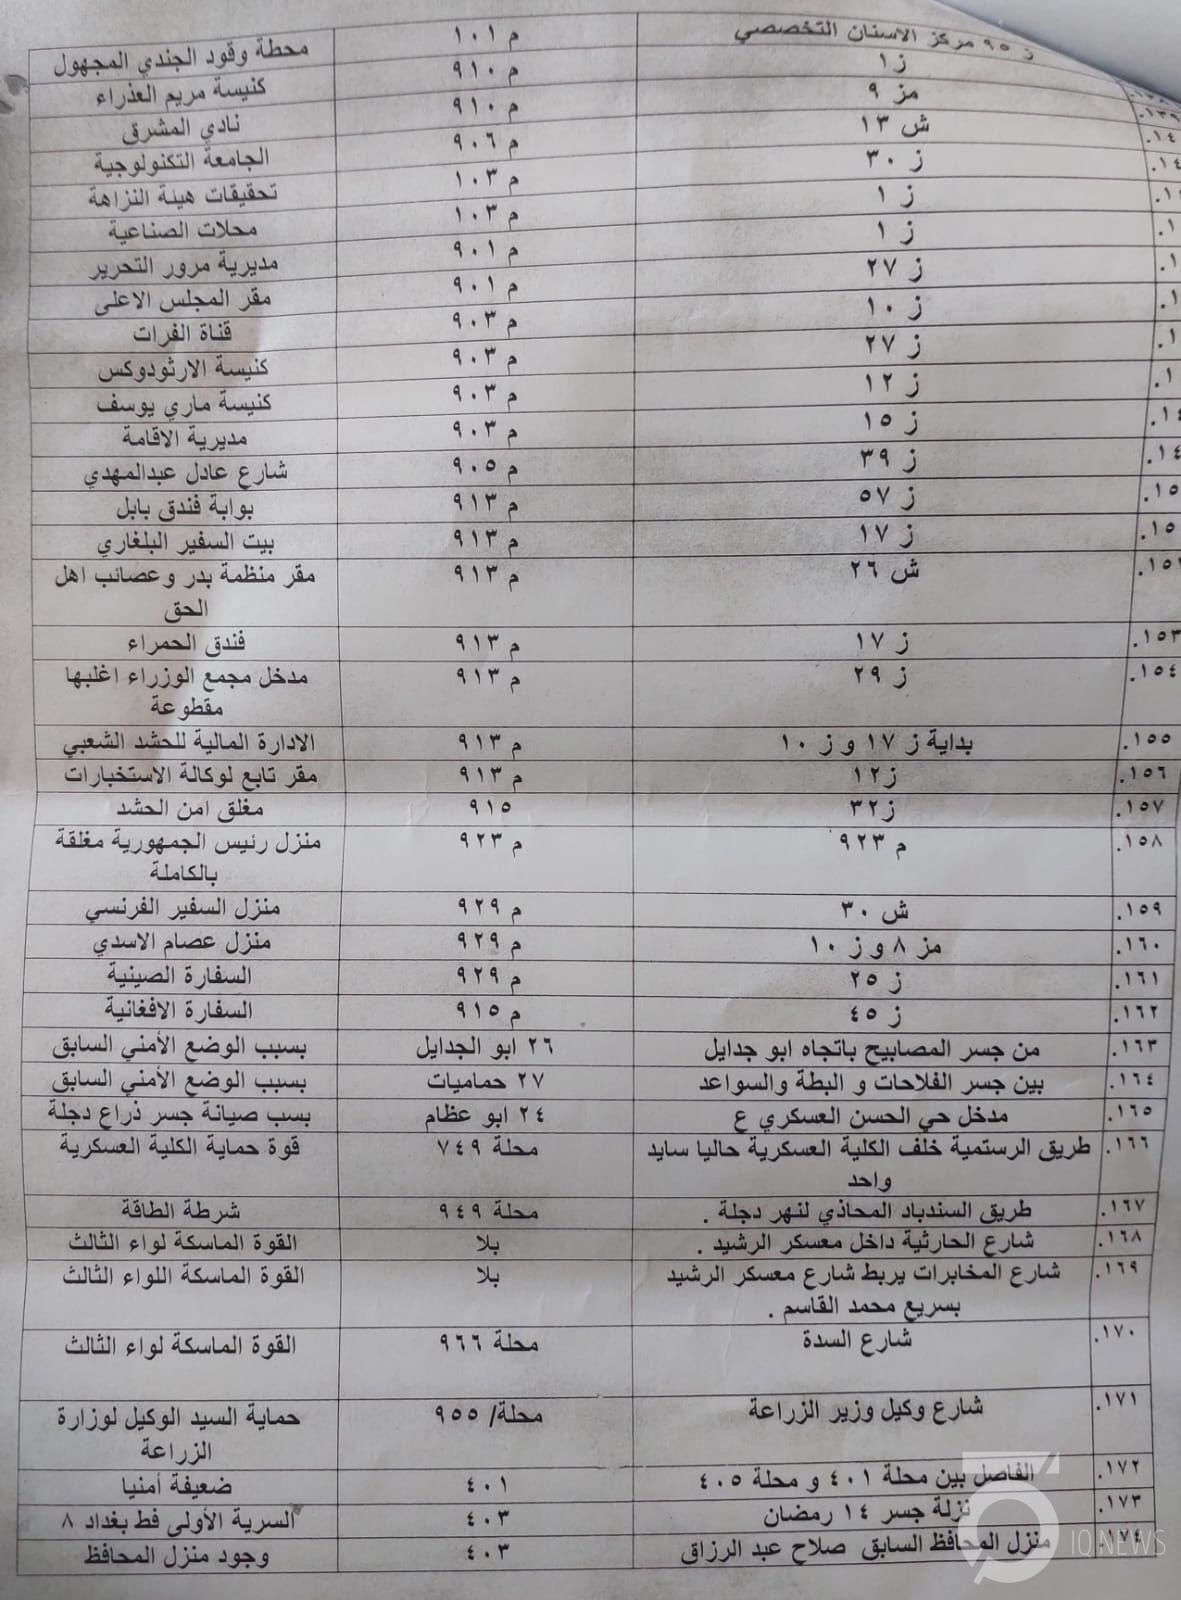 ز ٩٥ مركز الاسنان التخصصي م ١٠١ محطة وقود الجندي المجهول
ز ١ م ٩١٠ كنيسة مريم العذراء
مز ٩ م ٩١٠ نادي المشرق
ش ١٣ م ٩٠٦ الجامعة التكنولوجية
ز ٣٠ م ١٠٣ تحقيقات هيئة النزاهة
ز ١ م ١٠٣ محلات الصناعية
ز ١ م ٩٠١ مديرية مرور التحرير
ز ٢٧ م ٩٠١ مقر المجلس الاعلى
ز ١٠ م ٩٠٣ قناة الفرات
ز ٢٧ م ٩٠٣ كنيسة الارثودوكس
ز ١٢ م ٩٠٣ كنيسة ماري يوسف
ز ١٥ م ٩٠٣ مديرية الاقامة
ز ٣٩ م ٩٠٥ شارع عادل عبدالمهدي
ز ٥٧ م ٩١٣ بوابة فندق بابل
ز ١٧ م ٩١٣ بيت السفير البلغاري
ش ٢٦ م ٩١٣ مقر منظمة بدر وعصائب اهل
الحق
١٥٣. ز ١٧ م ٩١٣ فندق الحمراء
١٥٤. ز ٢٩ م ٩١٣ مدخل مجمع الوزراء اغلبها
مقطوعة
١٥٥. بداية ز ١٧ و ز ١٠ م ٩١٣ الادارة المالية للحشد الشعبي
١٥٦. ز١٢ م ٩١٣ مقر تابع لوكالة الاستخبارات
١٥٧. ز٣٢ ٩١٥ مغلق امن الحشد
١٥٨. م ٩٢٣ م ٩٢٣ منزل رئيس الجمهورية مغلقة
بالكاملة
١٥٩. ش ٣٠ م ٩٢٩ منزل السفير الفرنسي
١٦٠. مز ٨ و ز ١٠ م ٩٢٩ منزل عصام الاسدي
١٦١. ز ٢٥ م ٩٢٩ السفارة الصينية
١٦٢. ز ٤٥ م ٩١٥ السفارة الافغانية
١٦٣. من جسر المصابيح باتجاه ابو جدايل ٢٦ ابو الجدايل بسبب الوضع الأمني السابق
١٦٤. بين جسر الفلاحات و البطة والسواعد ٢٧ حماميات بسبب الوضع الأمني السابق
١٦٥. مدخل حي الحسن العسكري ع ٢٤ ابو عظام بسب صيانة جسر ذراع دجلة
١٦٦. طريق الرستمية خلف الكلية العسكرية حاليا سايد محلة ٧٤٩ قوة حماية الكلية العسكرية
واحد
١٦٧. طريق السندباد المحاذي لنهر دجلة . محلة ٩٤٩ شرطة الطاقة
١٦٨. شارع الحارثية داخل معسكر الرشيد . بلا القوة الماسكة لواء الثالث
١٦٩. شارع المخابرات يربط شارع معسكر الرشيد بلا القوة الماسكة اللواء الثالث
بسريع محمد القاسم .
١٧٠. شارع السدة محلة ٩٦٦ القوة الماسكة لواء الثالث
١٧١. شارع وكيل وزير الزراعة محلة/ ٩٥٥ حماية السيد الوكيل لوزارة
الزراعة
١٧٢. الفاصل بين محلة ٤٠١ و محلة ٤٠٥ ٤٠١ ضعيفة أمنيا
١٧٣. نزلة جسر ١٤ رمضان ٤٠٣ السرية الأولى فط بغداد ٨
١٧٤. منزل المحافظ السابق صلاح عبد الرزاق ٤٠٣ وجود منزل المحافظ
IQ NEWS